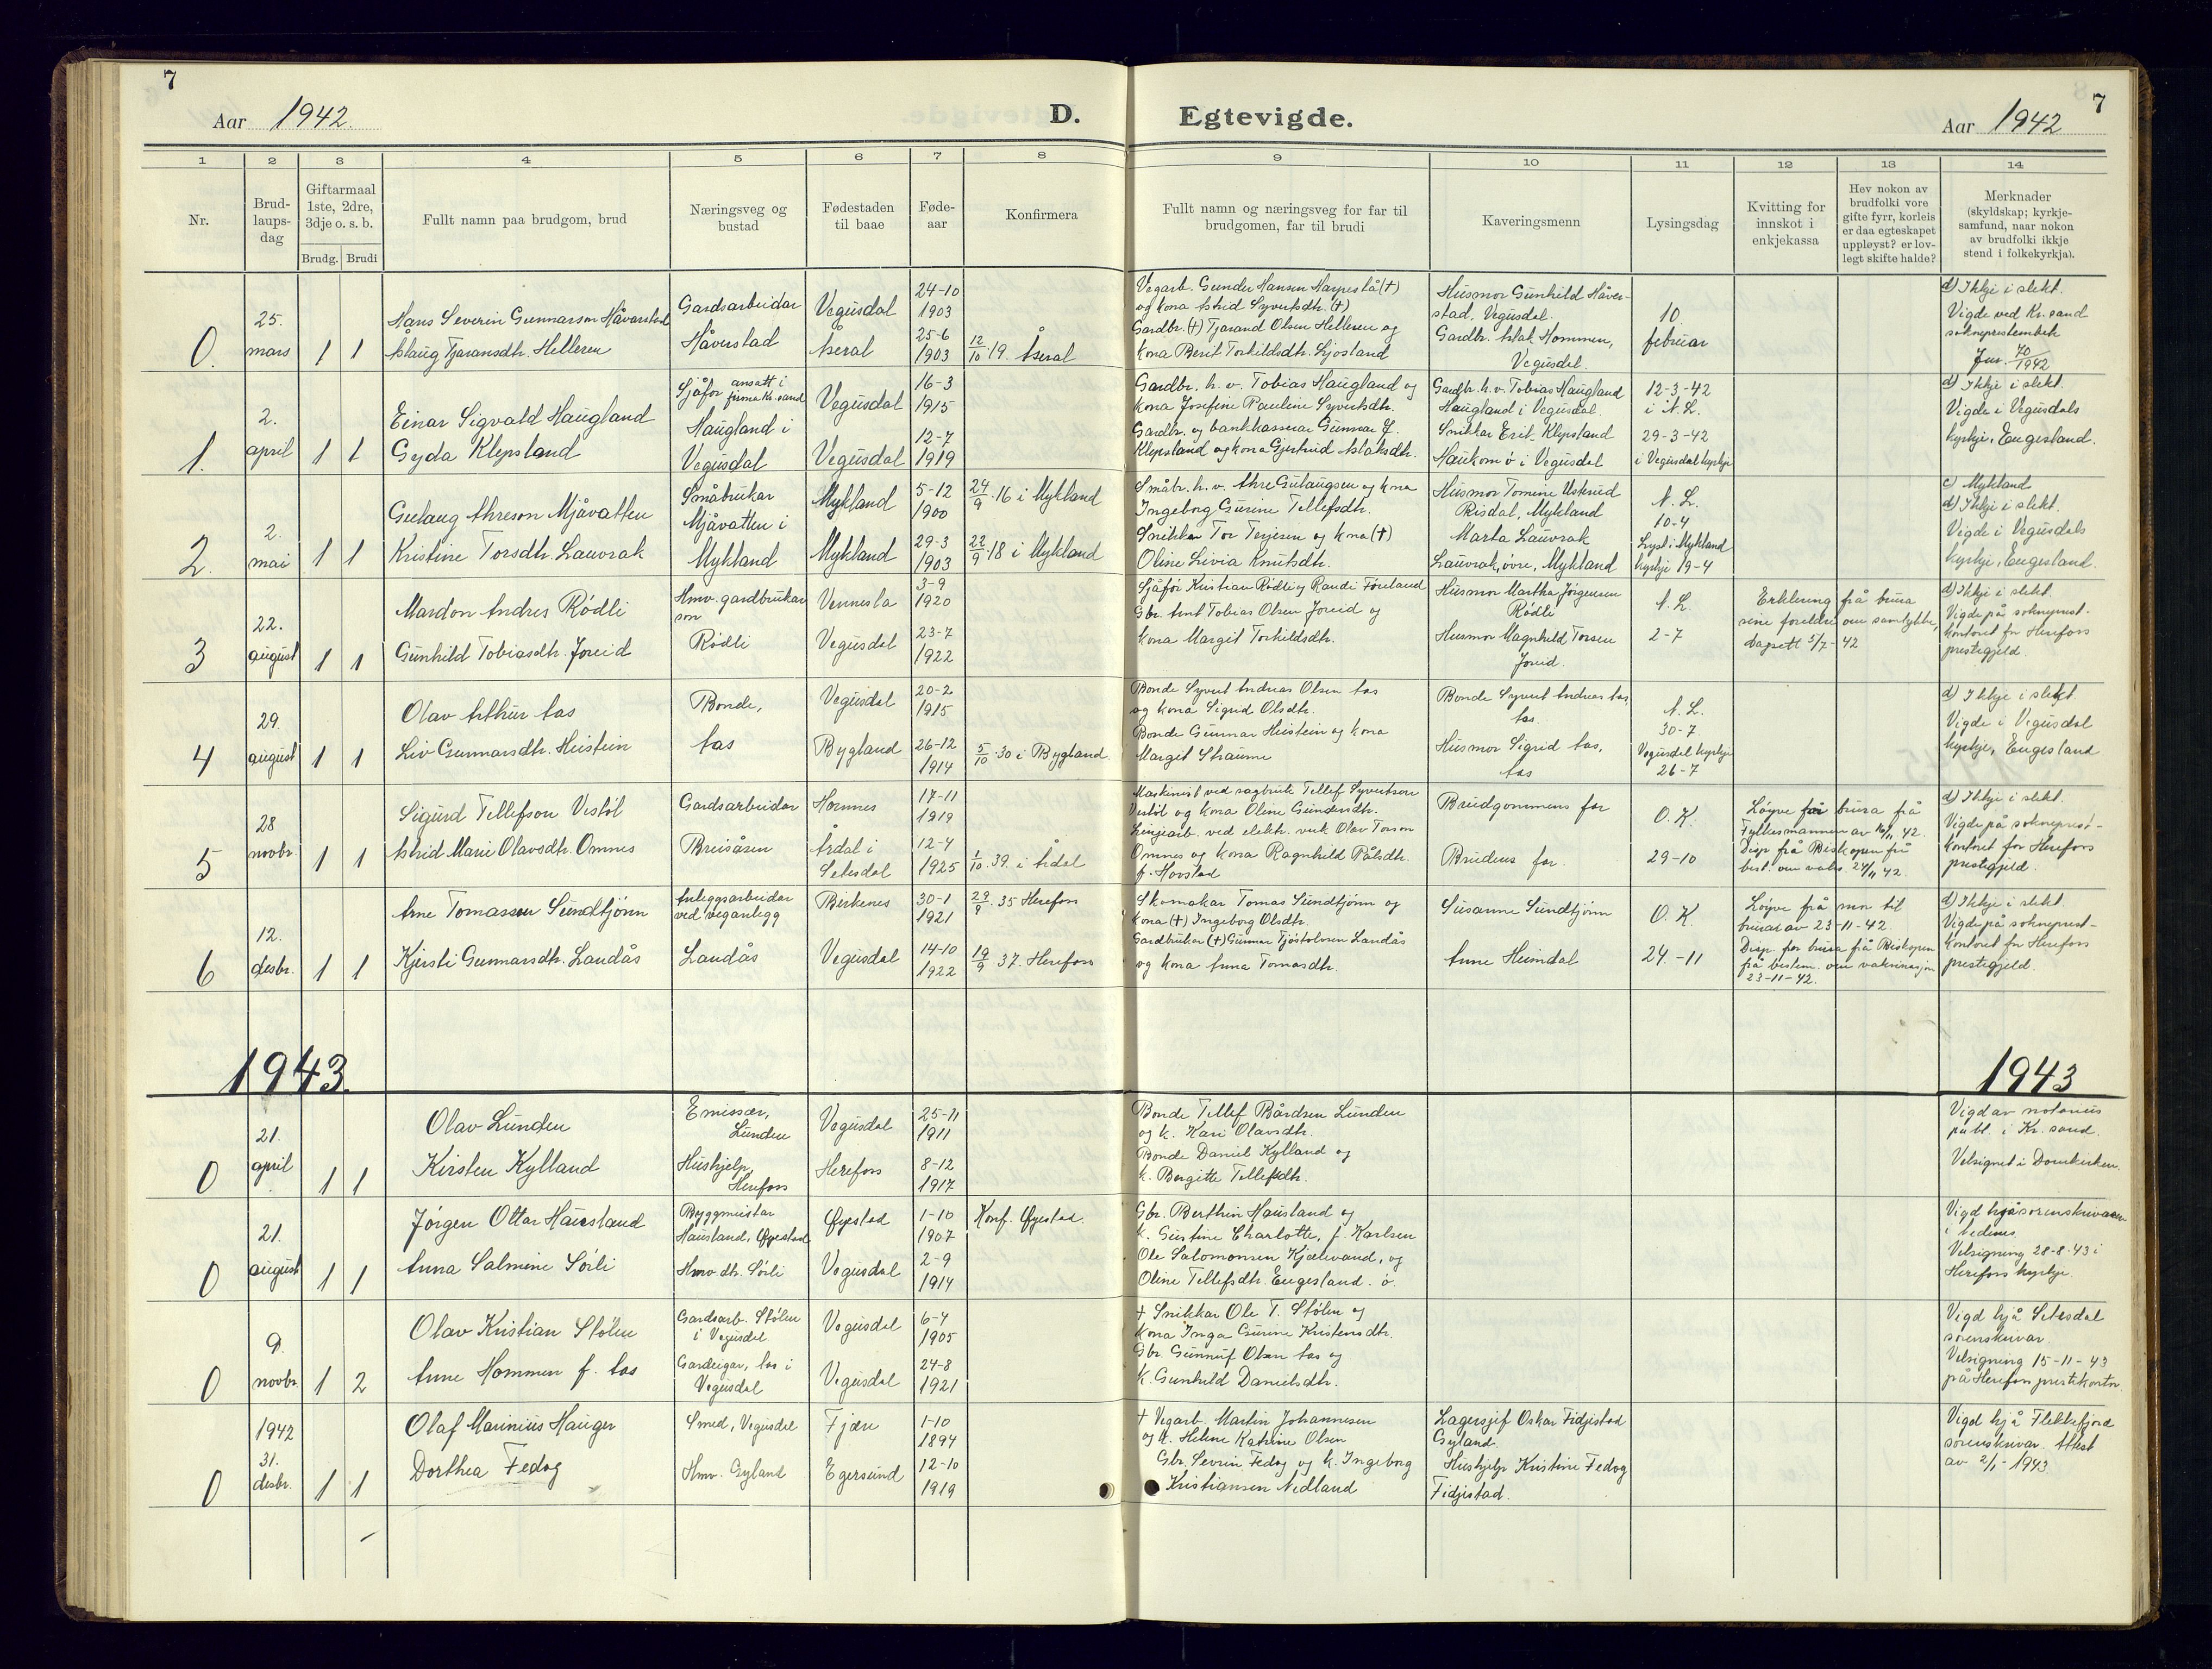 7
Aar 1942.
D. Egtevigde.
7
Aar 1942
1 2 3 4 5 6 7 8 9 10 11 12 13 14
Nr.
Brud-
laups-
dag
Giftarmaal
1ste, 2dre,
3dje o. s. b.
Brudg. Brudi
Fullt namn paa brudgom, brud
Næringsveg og
bustad
Fødestaden
til baae
Føde-
aar
Konfirmera
Fullt namn og næringsveg for far til
brudgomen, far til brudi
Kaveringsmenn
Lysingsdag
Kvitting for
innskot i
enkjekassa
Hev nokon av
brudfolki vore
gifte fyrr, korleis
er daa egteskapet
uppløyst? er lov-
legt skifte halde?
Merknader
(skyldskap; kyrkje-
samfund, naar nokon
av brudfolki ikkje
stend i folkekyrkja).
0.
25.
mars
1 1
Hans Severin Gunnarson Håverstad
Aslaug Tjaransdtr. Helleren
Gardsarbeidar
Håverstad
Vegusdal
Åseral
24-10
1903
25-6
1903
12/10 19. Åseral
Vegarb. Gunder Hansen Harpestå (+)
og kona Astrid Syvertsdtr. (+)
Gardbr. (+) Tjarand Olsen Helleren og
kona Berit Torkildsdtr. Ljosland
Husmor Gunhild Håver-
stad, Vegusdal.
Gardbr. Aslak Hommen,
Vegusdal.
10.
februar
d) Ikkje i slekt.
Vigde ved Kr.sand
sokneprestembete
Jnr. 70/1942
1.
2.
april
1 1
Einar Sigvald Haugland
Gyda Klepsland
Sjåfør ansatt i
firma Kr.sand
Haugland i
Vegusdal
Vegusdal
Vegusdal
16-3
1915
12-7
1919
Gardbr. h. v. Tobias Haugland og
kona Josefine Pauline Syvertsdtr.
Gardbr. og bankkasserar Gunnar G.
Klepsland og kona Gjertrud Aslaksdtr.
Gardbr. h. v. Tobias Haugland
Haugland i Vegusdal.
Snikkar Erik Klepsland
Haukom ö i Vegusdal
12-3-42
i N. L.
29-3-42
i Vegusdal kyrkje
d) Ikkje i slekt.
Vigde i Vegusdals
kyrkje, Engesland.
2.
2.
mai
1 1
Gulaug Åkreson Mjåvatten
Kristine Torsdtr. Lauvrak
Småbrukar
Mjåvatten i
Mykland
Mykland
Mykland
5-12
1900
29-3
1903
24/9 16 i Mykland
22/9 18 i Mykland
Småbr. h. v. Åkre Gulaugsen og kona
Ingeborg Gurine Tellefsdtr.
Snikkar Tor Terjesen og kona (+)
Oline Livia Knutsdtr.
Husmor Tomine Uskrud
Risdal, Mykland
Marta Lauvrak
Lauvrak, øvre, Mykland
N. L.
10-4
Lyst i Mykland
kyrkje 19-4
c) Mykland
d) Ikkje i slekt.
Vigde i Vegusdals
kyrkje, Engesland.
3
22.
august
1 1
Mardon Andres Rødli
Gunhild Tobiasdtr. Joreid
Hmv. gardbrukar
son
Rødli
Vennesla
Vegusdal
3-9
1920
23-7
1922
Sjåfør Kristian Rødli og Randi Føreland
Gbr. Arnt Tobias Olsen Joreid og
kona Margit Torkildsdtr.
Husmor Martha Jørgensen
Rødli
Husmor Magnhild Torsen
Joreid.
N. L.
2-7
Erklæring frå brura
sine foreldre om samtykke,
dagsett 5/7-42
d) Ikkje i slekt.
Vigde på sokneprest-
kontoret for Herefoss
prestegjeld.
4
29.
august
1 1
Olav Arthur Aas
Liv Gunnarsdtr. Heistein
Bonde,
Aas
Vegusdal
Bygland
20-2
1915
26-12
1914
5/10 30 i Bygland
Bonde Syvert Andreas Olsen Aas
og kona Sigrid Olsdtr.
Bonde Gunnar Heistein og kona
Margit Straume
Bonde Syvert Andreas Aas,
Aas.
Husmor Sigrid Aas,
Aas
N. L.
30-7
Vegusdal kyrkje
26-7
d) Ikkje i slekt
Vigde i Vegusdal
kyrkje, Engesland
5
28
novbr.
1 1
Sigurd Tellefson Vestøl
Astrid Marie Olavsdtr. Omnes
Gardsarbeidar
Breisåsen
Hornnes
Årdal i
Setesdal
17-11
1919
12-4
1925
1/10 39. i Årdal
Maskinist ved sagbruk Tellef Syvertson
Vestøl og kona Oline Gundersdtr.
Linjearb. ved elektr. verk Olav Torson
Omnes og kona Ragnhild Pålsdtr.
f. Horstad
Brudgommens far
Brudens far.
O. K.
29-10
Løyve for brura frå
Fylkesmannen av 16/11 42.
Disp. frå Biskopen frå
best. om vaks. 24/11 42.
d) Ikkje i slekt.
Vigde på sokneprest-
kontoret for Herefoss
prestegjeld.
6
12.
desbr.
1 1
Arne Tomassen Sundtjønn
Kjersti Gunnarsdtr. Landås
Anleggsarbeidar
ved veganlegg
Landås
Birkenes
Vegusdal
30-1
1921
14-10
1922
29/9. 35 Herefoss
19/9 37. Herefoss
Skomakar Tomas Sundtjønn og
kona (+) Ingeborg Olsdtr.
Gardbrukar (+) Gunnar Tjøstolvsen Landås
og kona Anna Tomasdtr.
Susanne Sundtjønn
Anne Heimdal
O. K.
24.-11
Løyve frå mor til
brura av 23-11-42.
Disp. for brura frå Biskopen
frå bestem. om vaksinasjon
23-11-42.
d) Ikkje i slekt.
Vigde på sokneprest-
kontoret for Herefoss
prestegjeld.
1943.
1943
0
21.
april
1 1
Olav Lunden
Kirsten Kylland
Emissær,
Lunden
Hushjelp,
Herefoss
Vegusdal
Herefoss
25-11
1911
8-12
1917
Bonde Tellef Bårdsen Lunden
og k. Kari Olavsdtr.
Bonde Daniel Kylland og
k. Bergitte Tellefsdtr.
Vigd av notarius
publ. i Kr. sand.
Velsignet i Domkirken.
0
21.
august
1 1
Jørgen Ottar Hausland
Anna Salmine Sørli
Byggmeistar
Hausland, Øyestad
Hmv. dtr. Sørli
Øyestad
Vegusdal
1-10
1907
2-9
1914
Konf. Øyestad.
Gbr. Berthin Hausland og
k. Gustine Charlotte, f. Karlsen
Ole Salomonsen Kjælevand, og
Oline Tellefsdtr. Engesland. ö.
Vigd hjå sorenskrivaren
i Nedenes
Velsigning 28-8-43 i
Herefoss kyrkje.
0
9.
novbr.
1 2
Olav Kristian Stølen
Anne Hommen f. Aas
Gardsarb. Stølen
i Vegusdal
Gardeigar, Aas i
Vegusdal
Vegusdal
Vegusdal
6-4
1905
24-8
1921
+ Snikkar Ole T. Stølen og
kona Inga Gurine Kristensdtr.
Gbr. Gunnuf Olsen Aas og
k. Gunhild Danielsdtr.
Vigd hjå Setesdal
sorenskrivar.
Velsigning 15-11-43
på Herefoss prestekontor
0
1942
31.
desbr.
1 1
Olaf Marinius Hauger
Dorthea Fedog
Smed, Vegusdal
Hmv. Gyland
Fjære
Egersund
1-10
1894
12-10
1919
+ Vegarb. Martin Johannesen
og k. Helene Katrine Olsen
Gbr. Severin Fedog og k. Ingeborg
Kristiansen Nedland
Lagersjef Oskar Fidjestad
Gyland.
Hushjelp Kristine Fedog
Fidjestad.
Vigd hjå Flekkefjord
sorenskrivar. Attest
av 2/1-1943